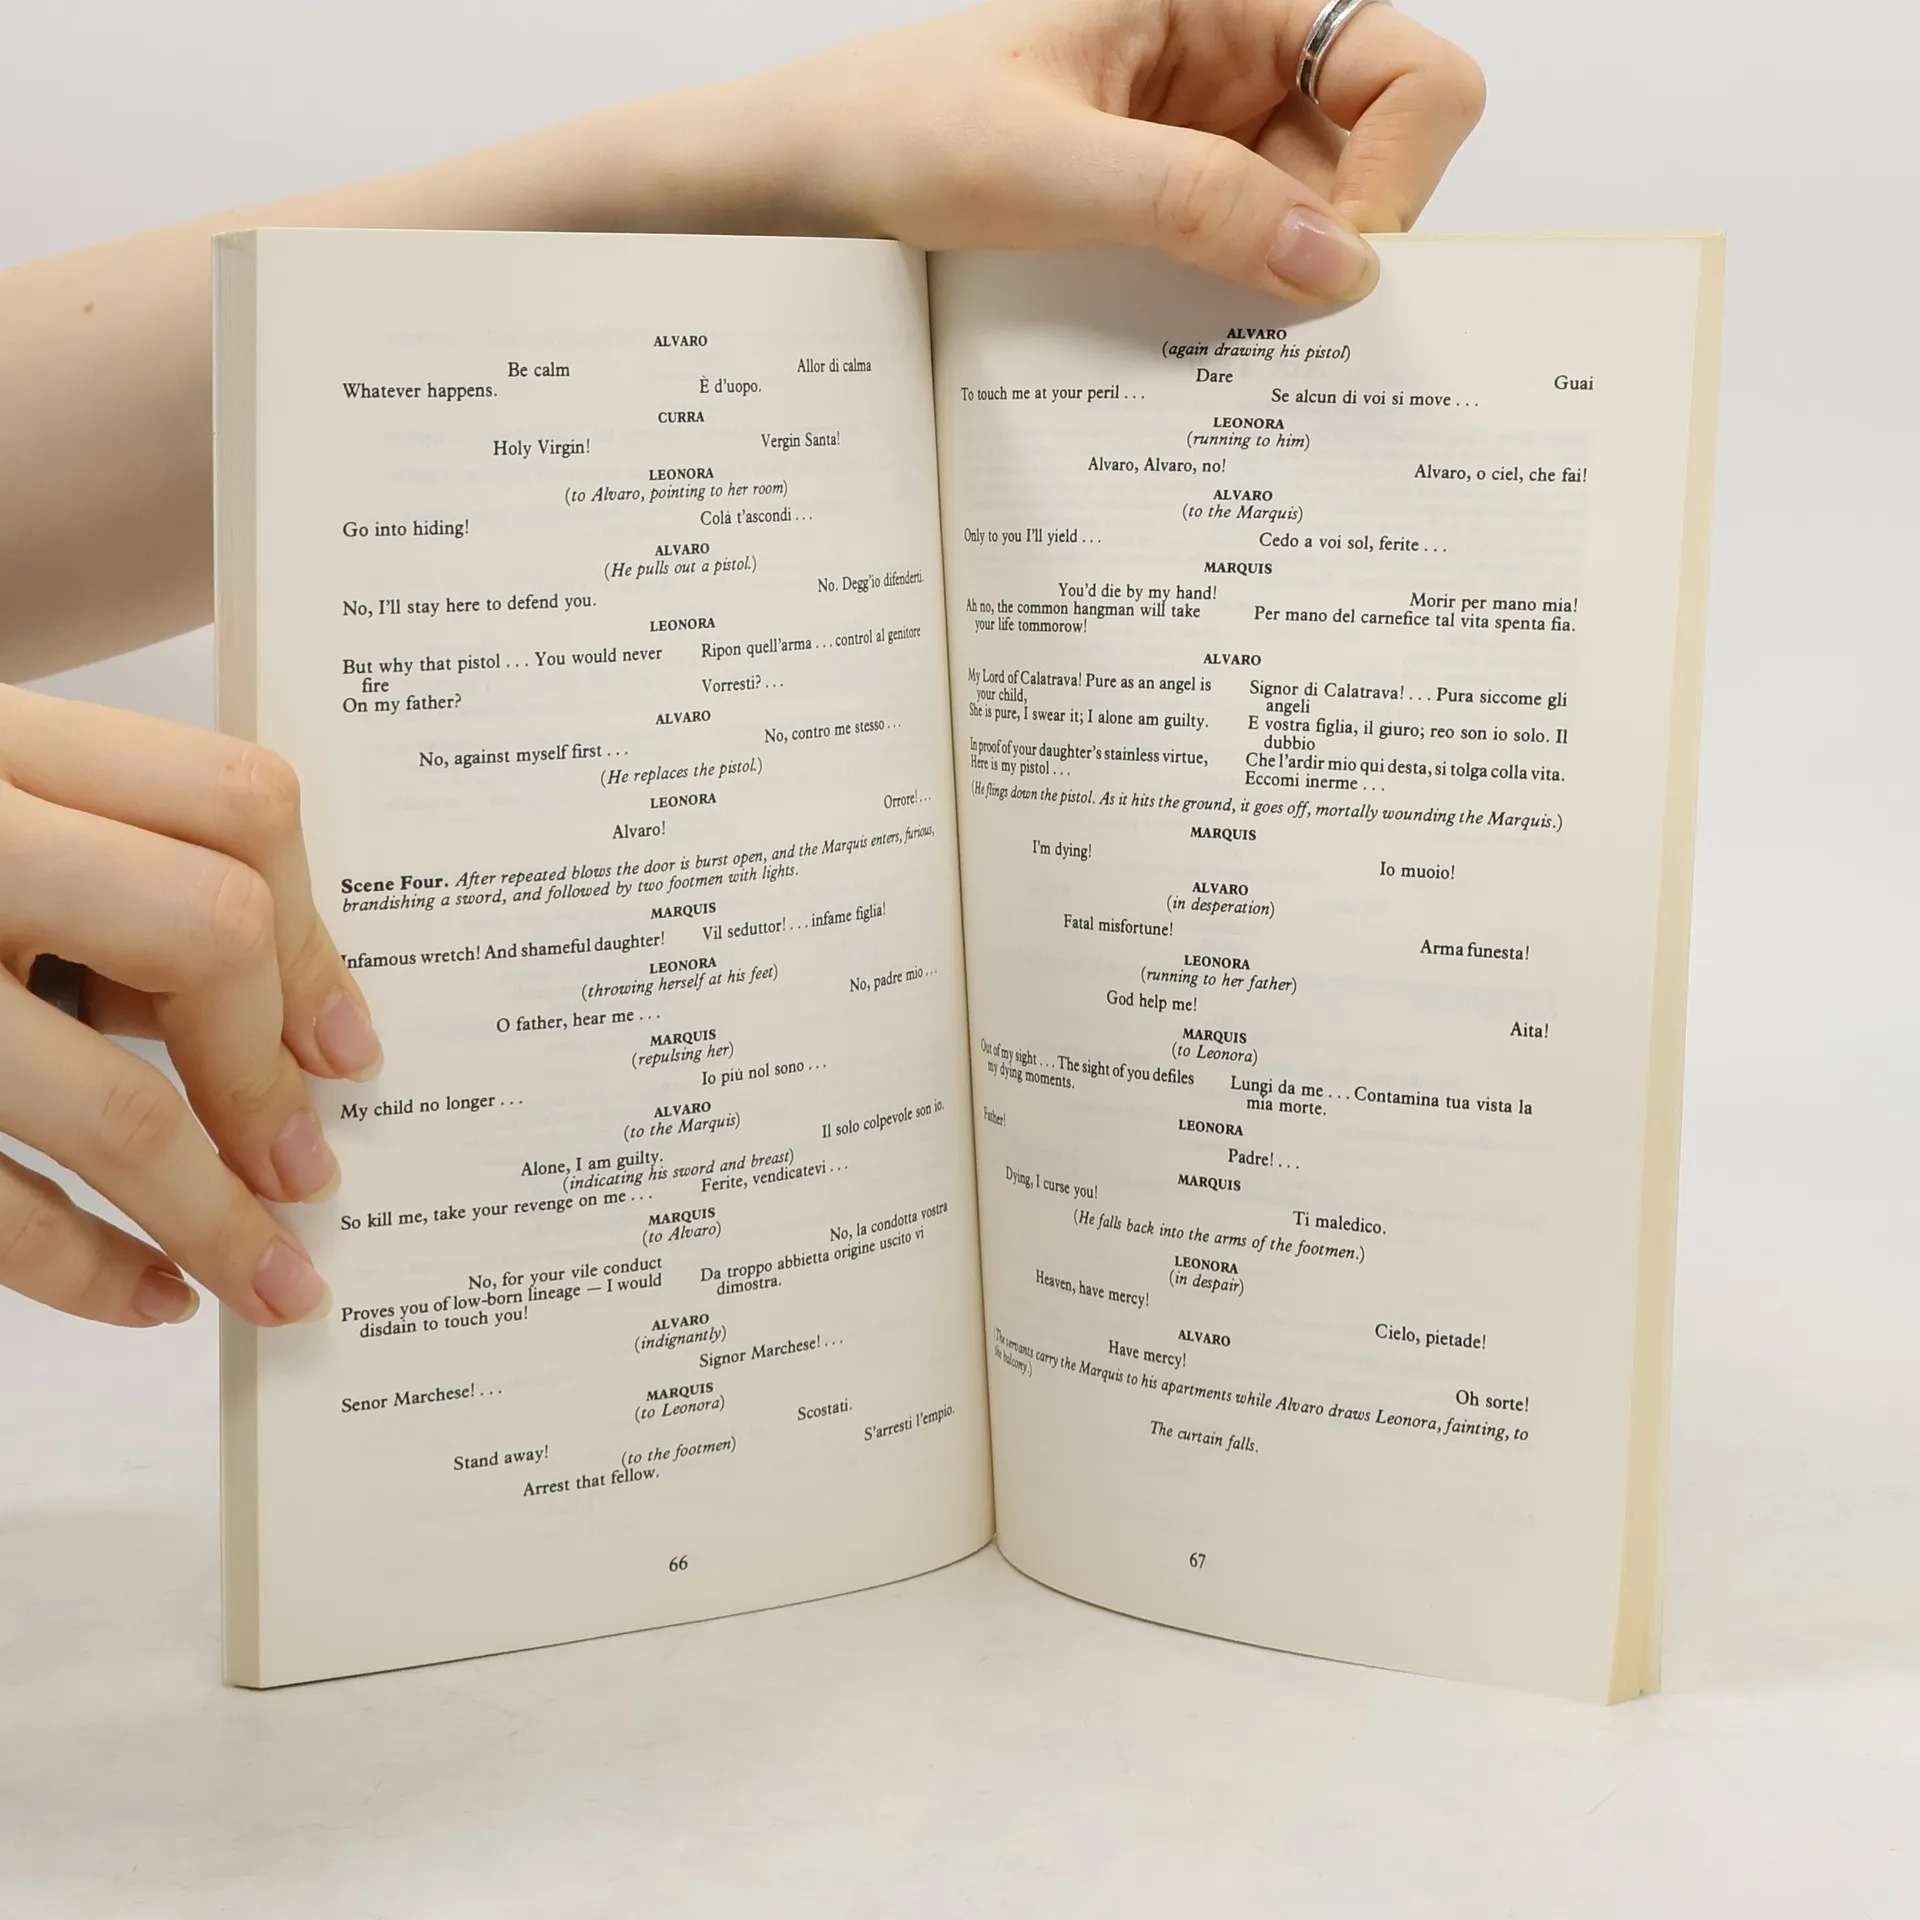 ALVARO
Be calm Allor di calma
Whatever happens. È d'uopo.
CURRA
Holy Virgin! Vergin Santa!
LEONORA
(to Alvaro, pointing to her room)
Go into hiding! Colà t'ascondi . . .
ALVARO
(He pulls out a pistol.)
No, I'll stay here to defend you. No. Degg'io difenderti.
LEONORA
But why that pistol . . . You would never Ripon quell'arma . . . control al genitore
fire
On my father? Vorresti? . . .
ALVARO
No, against myself first . . . No, contro me stesso . . .
(He replaces the pistol.)
LEONORA
Alvaro! Orrore! . . .
Scene Four. After repeated blows the door is burst open, and the Marquis enters, furious,
brandishing a sword, and followed by two footmen with lights.
MARQUIS
Infamous wretch! And shameful daughter! Vil seduttor! . . . infame figlia!
LEONORA
(throwing herself at his feet)
O father, hear me . . . No, padre mio . . .
MARQUIS
(repulsing her)
My child no longer . . . Io più nol sono . . .
ALVARO
(to the Marquis)
Alone, I am guilty. Il solo colpevole son io.
(indicating his sword and breast)
So kill me, take your revenge on me . . . Ferite, vendicatevi . . .
MARQUIS
(to Alvaro)
No, for your vile conduct No, la condotta vostra
Proves you of low-born lineage — I would Da troppo abbietta origine uscito vi
disdain to touch you! dimostra.
ALVARO
(indignantly)
Senor Marchese! . . . Signor Marchese! . . .
MARQUIS
(to Leonora)
Stand away! Scostati.
(to the footmen)
Arrest that fellow. S'arresti l'empio.
66
ALVARO
(again drawing his pistol)
Dare Guai
To touch me at your peril . . . Se alcun di voi si move . . .
LEONORA
(running to him)
Alvaro, Alvaro, no! Alvaro, o ciel, che fai!
ALVARO
(to the Marquis)
Only to you I'll yield . . . Cedo a voi sol, ferite . . .
MARQUIS
You'd die by my hand! Morir per mano mia!
Ah no, the common hangman will take Per mano del carnefice tal vita spenta fia.
your life tommorow!
ALVARO
My Lord of Calatrava! Pure as an angel is Signor di Calatrava! . . . Pura siccome gli
your child, angeli
She is pure, I swear it; I alone am guilty. E vostra figlia, il giuro; reo son io solo. Il
dubbio
In proof of your daughter's stainless virtue, Che l'ardir mio qui desta, si tolga colla vita.
Here is my pistol . . . Eccomi inerme . . .
(He flings down the pistol. As it hits the ground, it goes off, mortally wounding the Marquis.)
MARQUIS
I'm dying! Io muoio!
ALVARO
(in desperation)
Fatal misfortune! Arma funesta!
LEONORA
(running to her father)
God help me! Aita!
MARQUIS
(to Leonora)
Out of my sight . . . The sight of you defiles Lungi da me . . . Contamina tua vista la
my dying moments. mia morte.
LEONORA
Father! Padre! . . .
MARQUIS
Dying, I curse you! Ti maledico.
(He falls back into the arms of the footmen.)
LEONORA
(in despair)
Heaven, have mercy! Cielo, pietade!
ALVARO
Have mercy! Oh sorte!
(The servants carry the Marquis to his apartments while Alvaro draws Leonora, fainting, to
the balcony.)
The curtain falls.
67